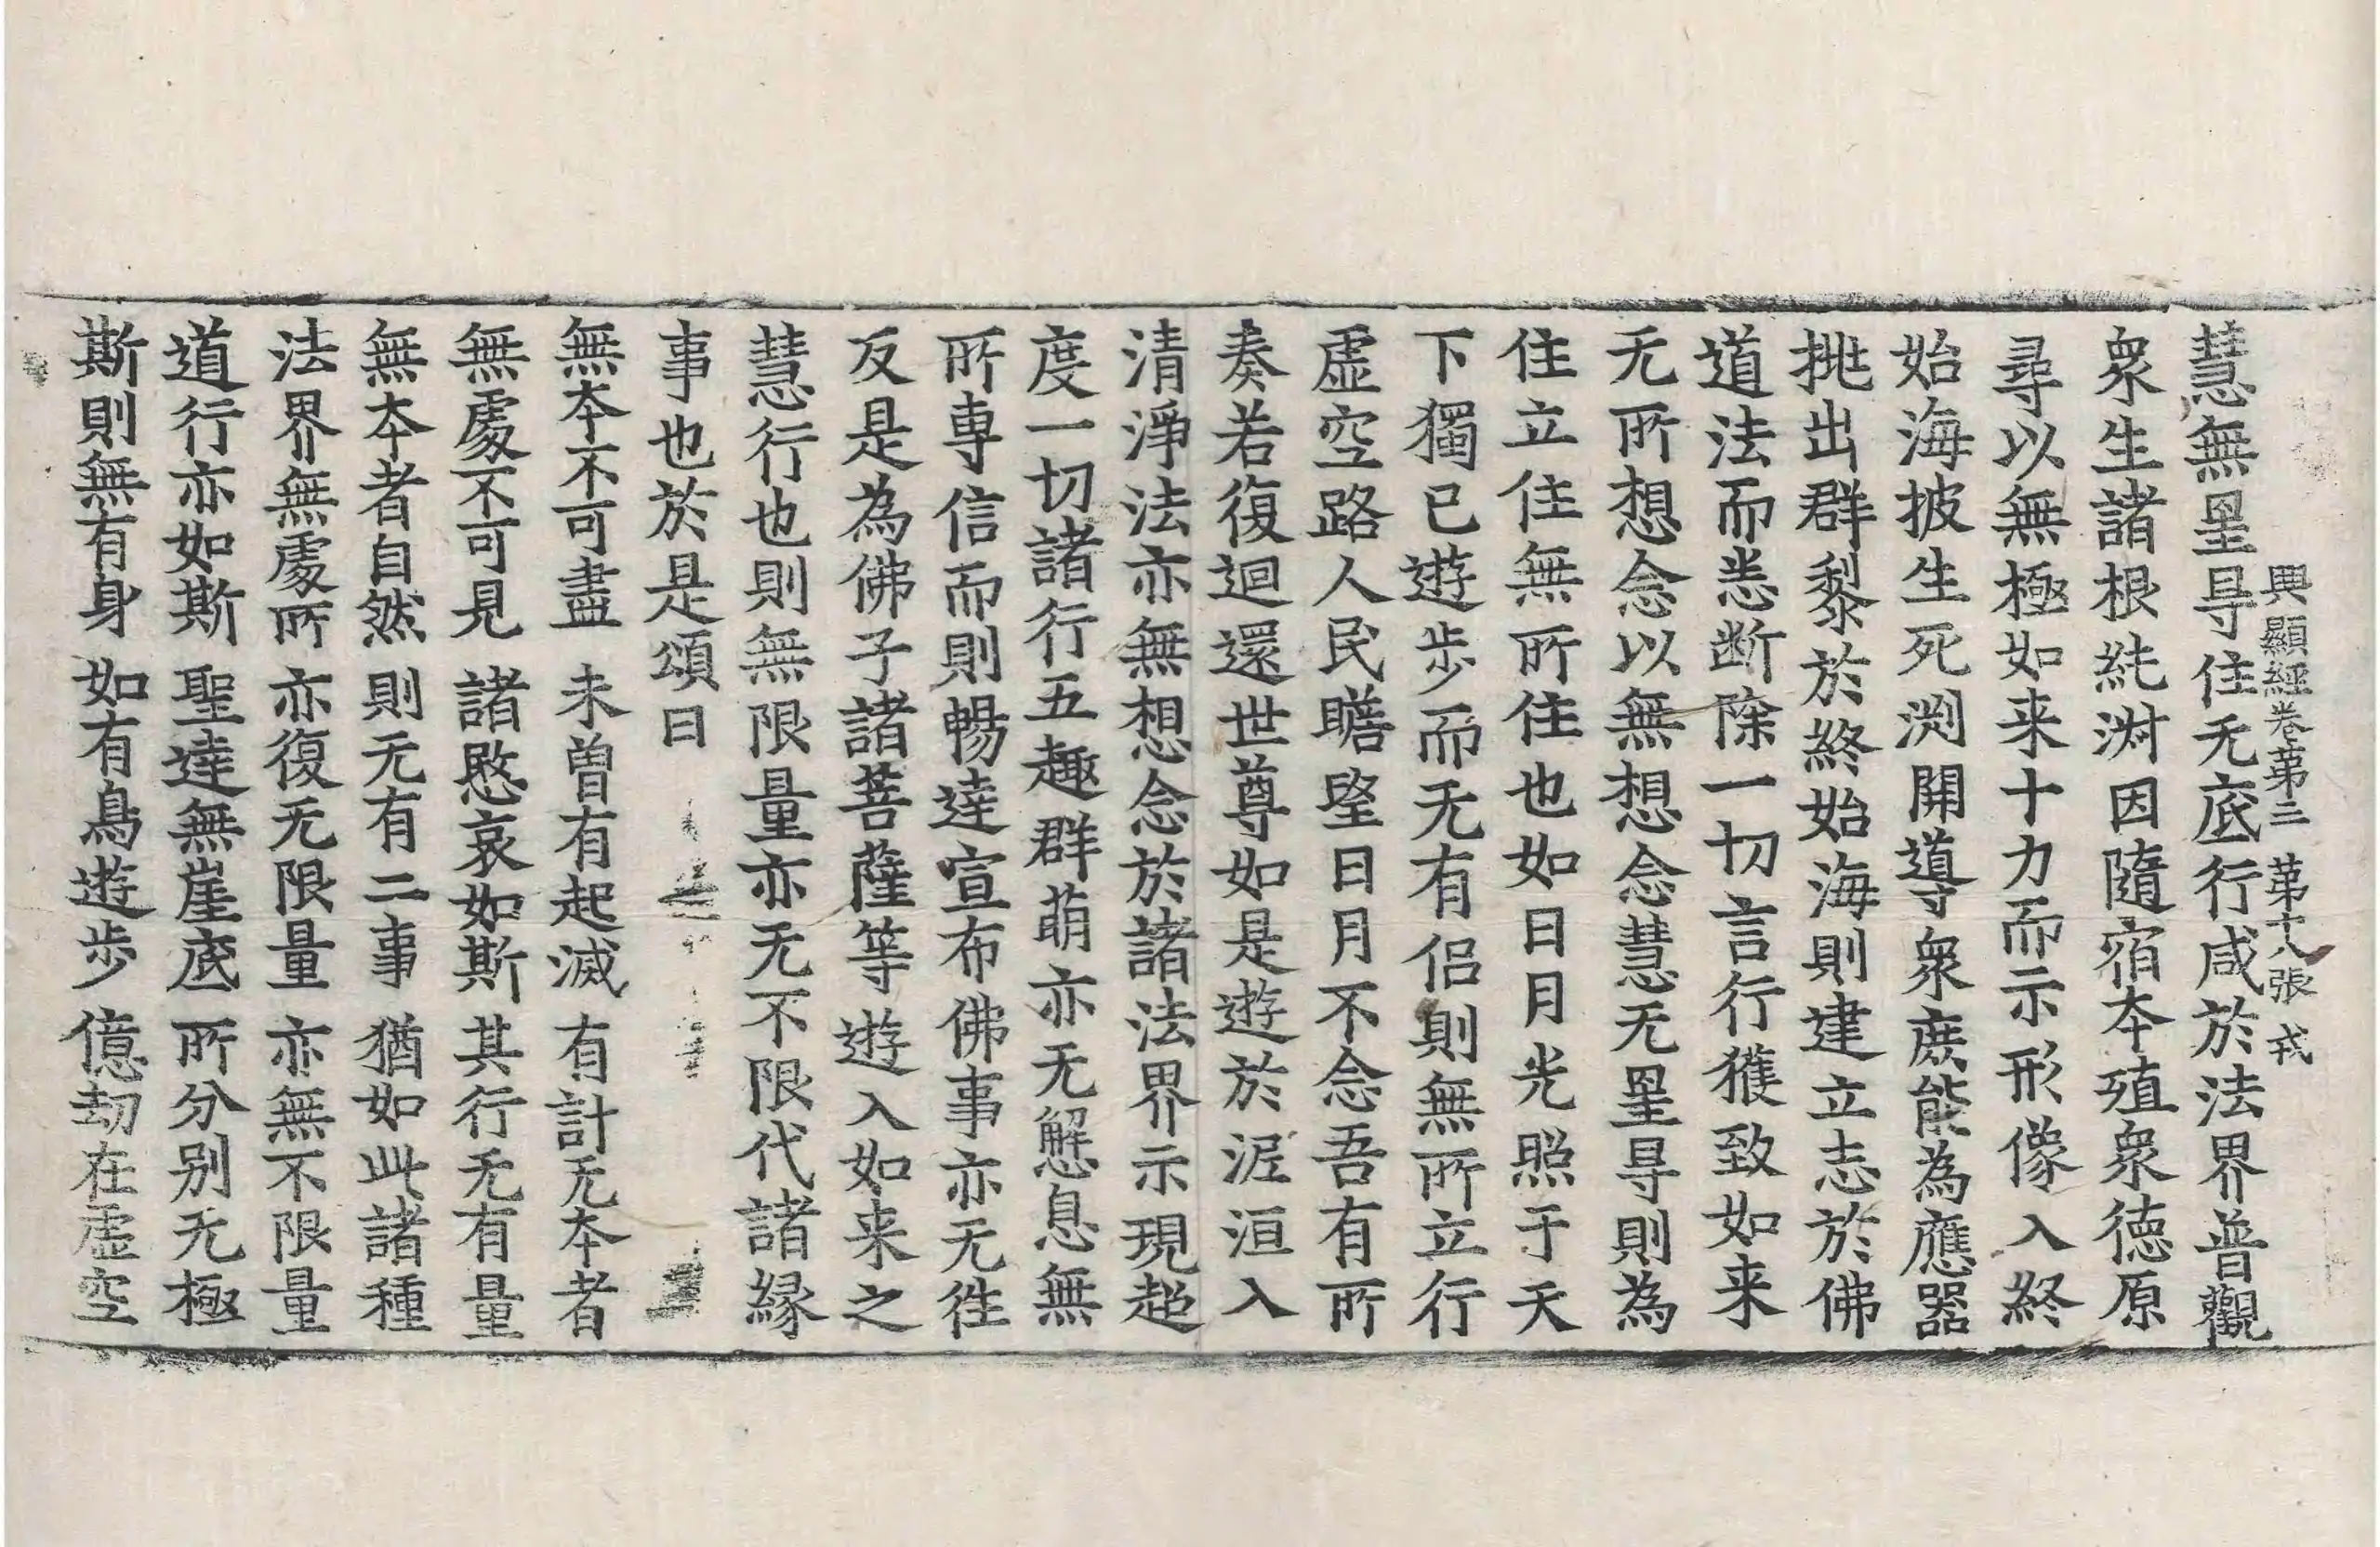 興顯經卷第三 第十八張 戎
慧無罣㝵住无底行咸於法界普觀
衆生諸根純淑因隨宿本殖衆德原
尋以無極如来十力而示形像入終
始海披生死渕開導衆庶能為應器
挑出群黎於終始海則建立志於佛
道法而悉断除一切言行獲致如来
无所想念以無想念慧无罣㝵則為
住立住無所住也如日月光照于天
下獨已遊步而无有侣則無所立行
虛空路人民瞻望日月不念吾有所
奏若復迴還世尊如是遊於泥洹入
清淨法亦無想念於諸法界示現超
度一切諸行五趣群萌亦无懈息無
所專信而則暢達宣布佛事亦无往
反是為佛子諸菩薩等遊入如来之
慧行也則無限量亦无不限代諸縁
事也於是頌曰
無本不可盡 未曽有起滅 有計无本者
無處不可見 諸愍哀如斯 其行无有量
無本者自然 則无有二事 猶如此諸種
法界無處所 亦復无限量 亦無不限量
道行亦如斯 聖達無崖底 所分别无極
斯則無有身 如有鳥遊步 億劫在虛空